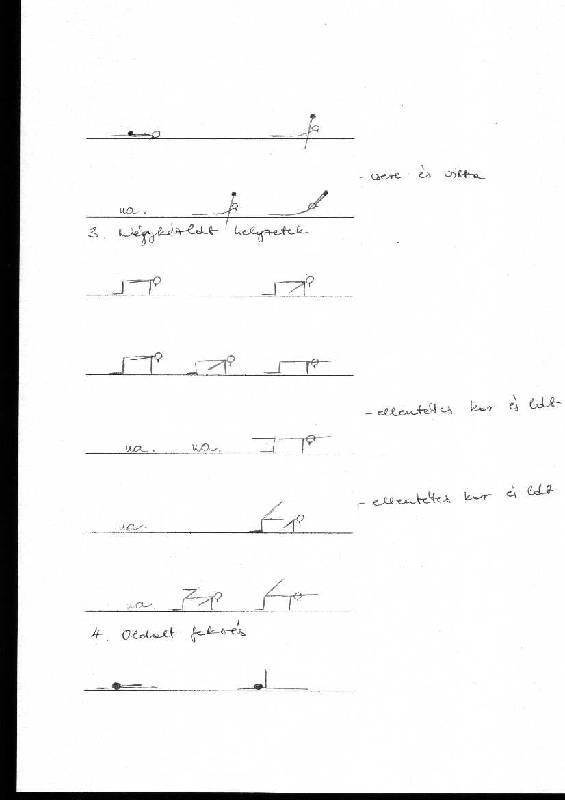 - csere és vissza
ua.
3. Négykézláb helyzetek
- ellentétes kar és láb
ua. ua.
- ellentétes kar és láb
ua.
ua.
4. Oldalt fekvés